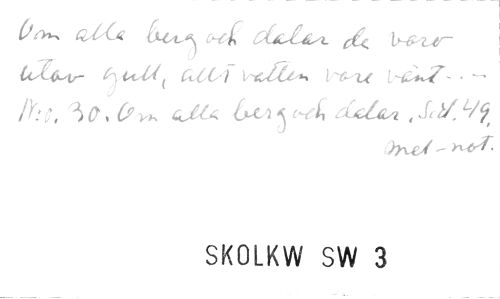 Om alla berg och dalar de voro
utav gull, allt vatten vore vänt...-
N:o. 30. Om alla berg och dalar. Sid. 49.
mel-not.
SKOLKW SW 3